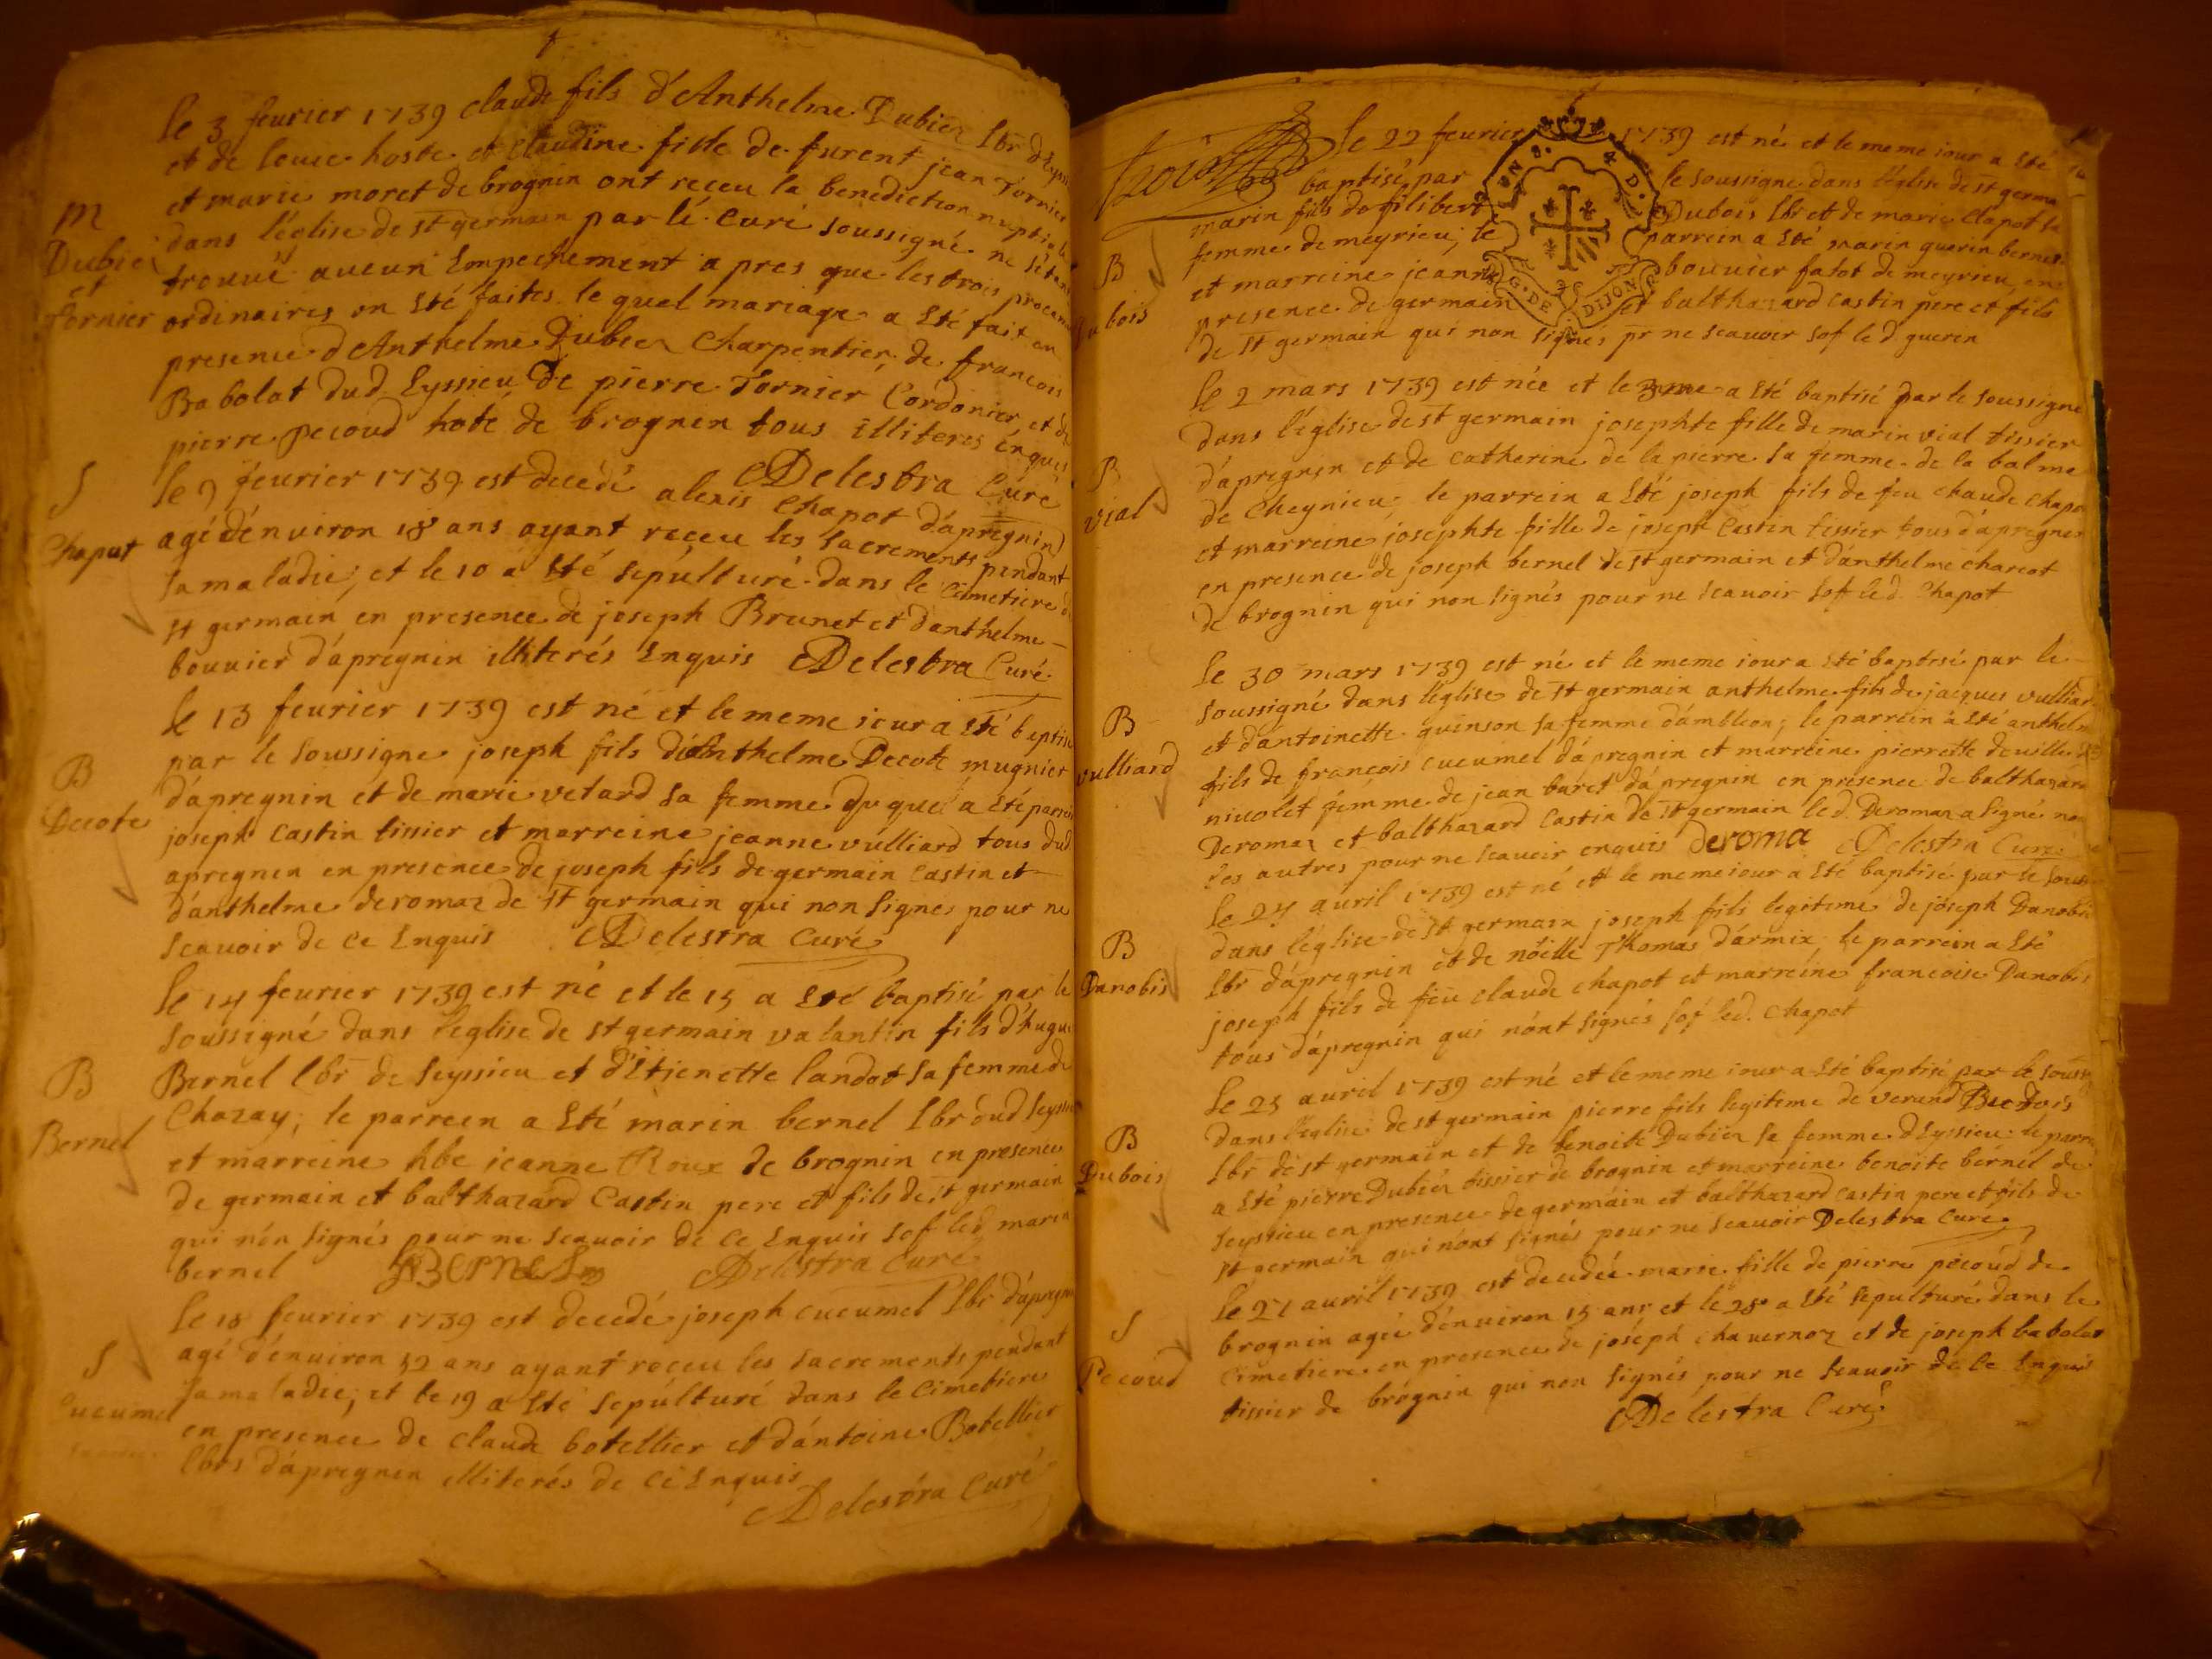 le 3 feurier 1739 claude fils d'Anthelme Dubier lbr d'Eyssi
et de louise hoste et claudine fille de furent jean Tornier
et marie moret de brognin ont receu la benediction nuptiale
M
dans l'eglise de st germain par le Curé soussigné ne s'etant
Dubier
trouvé aucun Empechement apres que les trois procam
et
Tornier
ordinaires on Eté faites le quel mariage a Eté fait en
presence d'Anthelme Dubier Charpentier, de francois
Babolat dud Eyssieu de pierre Tornier Cordonier, et de
pierre pecoud hote de brognin tous illiteres énquis
Delestra Curé
S
le 9 feurier 1739 est decedé alexis Chapot d'apregnin
Chaput
agé d'énuiron 18 ans ayant receu les Sacrements pendant
sa maladie; et le 10 a Eté sepulturé dans le Cimetiere de
st germain en presence de joseph Brunet et d'anthelme
bouuier d'apregnin illiterés Enquis Delestra Curé
le 13 feurier 1739 est né et le meme iour a Eté baptisé
par le soussigne joseph fils d'Anthelme Decote mugnier
B
Decote
d'apregnin et de marie vetard sa femme duquel a Eté parrein
joseph Castin tissier et marreine jeanne vulliard tous dud
apregnin en presence de joseph fils de germain Castin et
d'anthelme deromaz de st germain qui non Signés pour ne
Scauoir de ce Enquis Delestra Curé
le 14 feurier 1739 est né et le 15 a Eté baptisé par le
soussigné dans l'eglise de st germain valantin fils d'hugue
B
Bernel
Bernel lbr de seyssieu et d'Etienette landot sa femme de
Chazay; le parrein a Eté marin bernel lbr dud seyssieu
et marreine hbe jeanne Roux de brognin en presence
de germain et balthazard Castin pere et fils de st germain
qui non Signés pour ne Scauoir de ce Enquis sof led marin
bernel BERNEL Delestra Curé
le 18 feurier 1739 est decedé joseph cucumel lbr d'apregnin
S
Cucumel
agé d'énuiron 52 ans ayant receu les sacrements pendant
sa maladie; et le 19 a Eté sepulturé dans le Cimetiere
en presence de claude botellier et d'antoine Botellier
lbrs d'apregnin illiterés de ce Enquis
Delestra Curé
le 22 feurier 1739 est né et le meme iour a Eté
baptisé par le soussigne dans l'eglise de st germa
GEN DE DIJON
B
Dubois
marin fils de filibert Dubois lbr et de marie Clapot sa
femme de meyrieu; le parrein a Eté marin guerin bernel
et marreine jeanne bouuier fatot de meyrieu en
presence de germain et balthazard Castin pere et fils
de st germain qui non signés pr ne scauoir sof le d. guerin
le 2 mars 1739 est née et le 3me a Eté baptisé par le soussigne
dans l'eglise de st germain josephte fille de marin vial tissier
B
vial
d'apregnin et de Catherine de la pierre sa femme de la balme
de Cheynieu; le parrein a Eté joseph fils de feu claude chapo
et marreine josephte fille de joseph Castin tissier tous d'apregnin
en presence de joseph bernel de st germain et d'anthelme charcot
de brognin qui non signés pour ne scauoir sof le d. Chapot
le 30 mars 1739 est né et le meme iour a Eté baptisé par le
soussigné dans l'eglise de st germain anthelme fils de jacques vulliar
B
vulliard
et d'antoinette guinson sa femme d'ambleon; le parrein a Eté anthelm
fils de francois cucumel d'apregnin et marreine pierrette deuille
nicolet femme de jean buret d'apregnin en presence de balthazard
Deromaz et balthazard Castin de st germain le d. Deromaz a signé non
les autres pour ne scauoir enquis Deroma Delestra Curé
le 24 auril 1739 est né et le meme iour a Eté baptisé par le souss
dans l'eglise de st germain joseph fils legitime de joseph Danobis
B
Danobis
lbr d'apregnin et de nöelle Thomas d'armix; le parrein a Eté
joseph fils de feu claude chapot et marreine francoise Danobis
tous d'apregnin qui n'ont signés sof led. Chapot
le 25 auril 1739 est né et le meme iour a Eté baptisé par le souss
dans l'eglise de st germain pierre fils legitime de verand Dubois
B
Dubois
lbr de st germain et de benoite Dubier sa femme d'Eyssieu le parre
a Eté pierre Dubier tissier de brognin et marreine benoite bernel de
seyssieu en presence de germain et balthazard castin pere et fils de
st germain qui n'ont signés pour ne scauoir Delestra Curé
le 27 auril 1739 est decedée marie fille de pierre pecoud de
S
Pecoud
brognin agée d'énuiron 15 ans et le 28 a Eté sepulturé dans le
Cimetiere en presence de joseph chauernoz et de joseph babolat
tissier de brognin qui non signés pour ne scauoir de ce Enquis
Delestra Curé